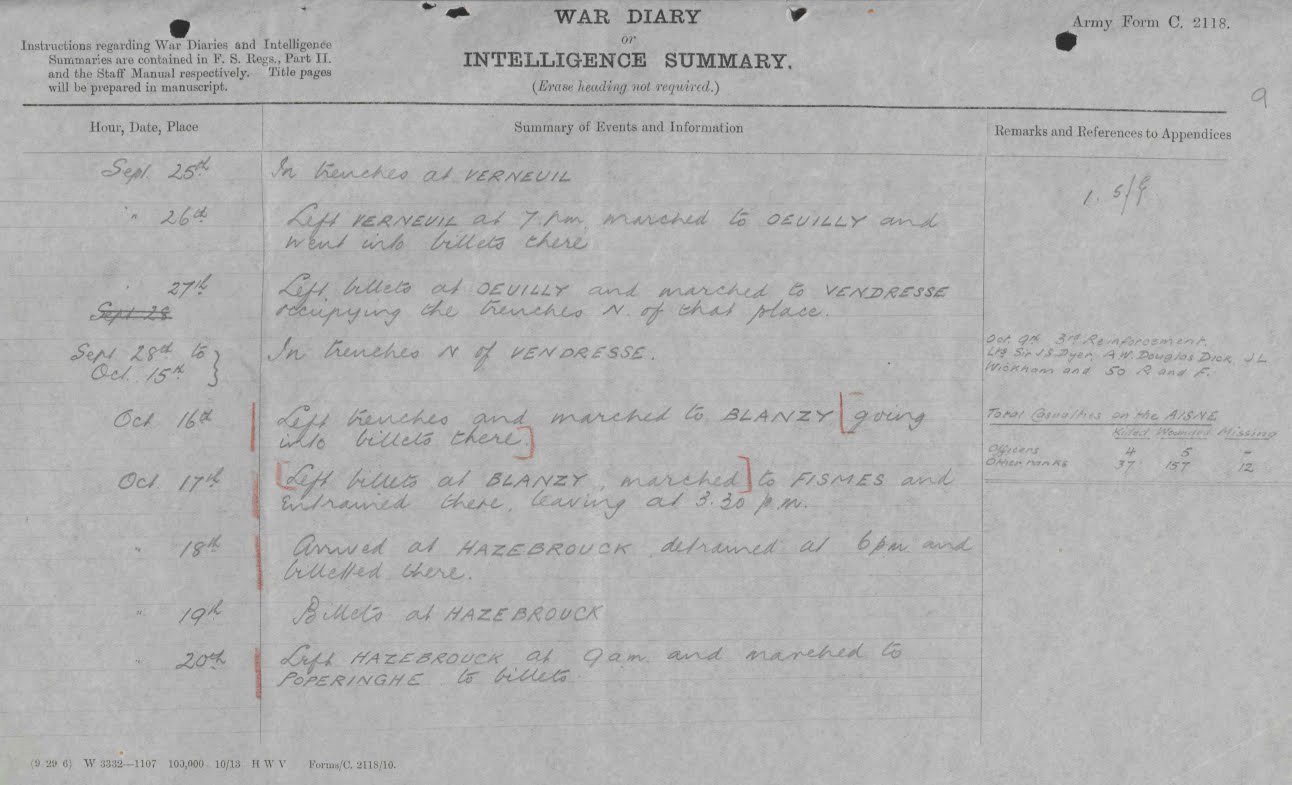 WAR DIARY
or
INTELLIGENCE SUMMARY.
(Erase heading not required.)
Army Form C. 2118.
Instructions regarding War Diaries and Intelligence
Summaries are contained in F. S. Regs., Part II.
and the Staff Manual respectively. Title pages
will be prepared in manuscript.
9
Hour, Date, Place
Summary of Events and Information
Remarks and References to Appendices
Sept. 25th
In trenches at VERNEUIL
" 26th
Left VERNEUIL at 7.p.m. marched to OEUILLY and
went into billets there
" 27th
Left billets at OEUILLY and marched to VENDRESSE
Sept 28
occupying the trenches N. of that place.
Sept 28th to
Oct. 15th
In trenches N of VENDRESSE.
Oct. 9th 3rd Reinforcement.
Lts Sir J.S. Dyer, A.W. Douglas Dick, J L
Wickham and 50 R and F.
Oct 16th
Left trenches and marched to BLANZY [going
into billets there.]
Total Casualties on the AISNE
Killed Wounded Missing
Officers 4 5 -
Other ranks 37 157 12
Oct. 17th
[Left billets at BLANZY, marched] to FISMES and
Entrained there, leaving at 3.30 p.m.
" 18th
Arrived at HAZEBROUCK detrained at 6pm and
billetted there.
" 19th
Billets at HAZEBROUCK
" 20th
Left HAZEBROUCK at 9 a.m. and marched to
POPERINGHE to billets
(9 29 6) W 3332—1107 100,000 10/13 H W V Forms/C. 2118/10.